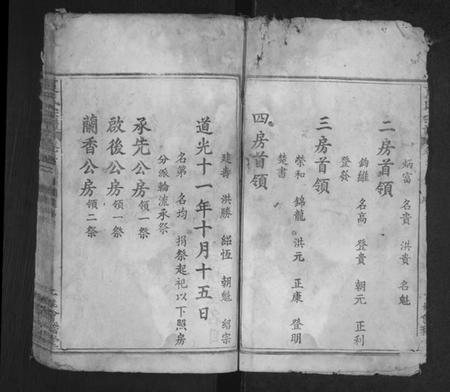 炳富 名貴 洪貴 名魁
二房首領
鈞維 名高 登貴 朝元 正利
登發
三房首領
榮和 錦龍 洪元 正康 登明
焚書
四房首領
建壽 洪勝 紹恆 朝魁 紹宗
道光十一年十月十五日
名第 名均 捐祭起祀以下照房
分派輪流承祭
承先公房領一祭
啟後公房領一祭
蘭香公房領二祭